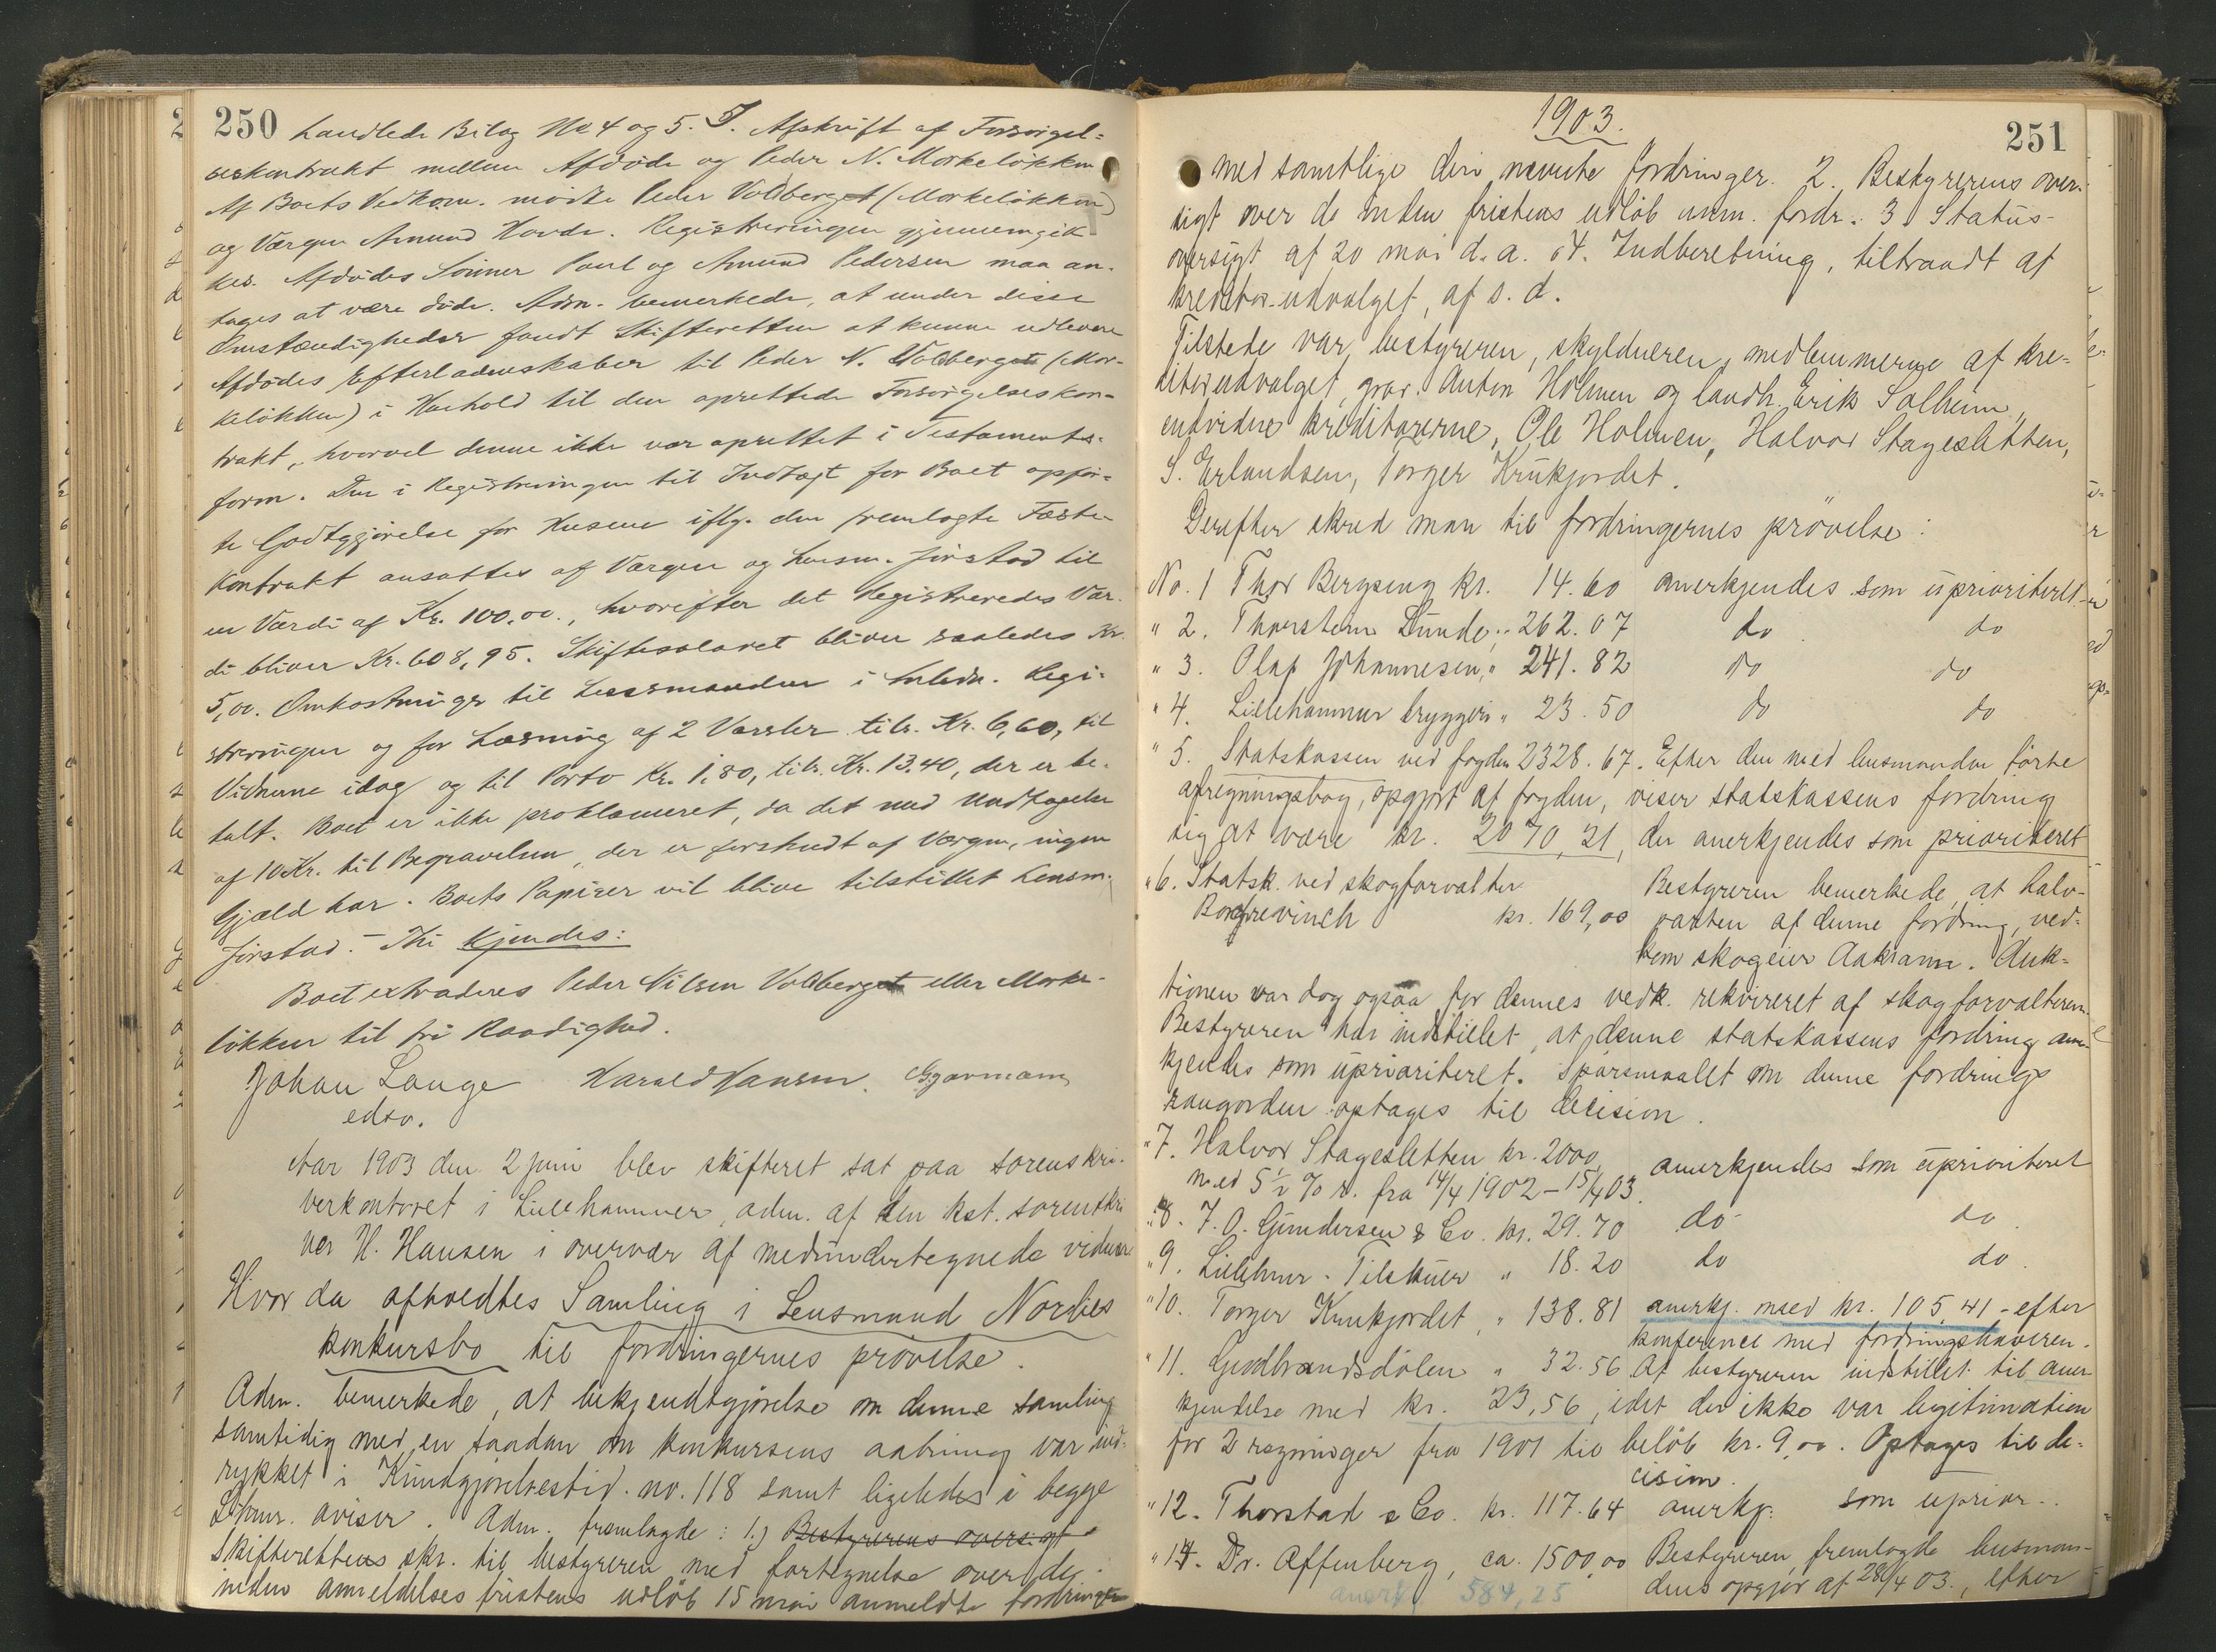 250
handlede Bilag No 4 og 5. J. Afskrift af Forsørgel-
seskontrakt mellem Afdøde og Peder N. Morkeløkken
Af Boets Vedkom. mødte Peder Voldberget (Morkeløkken)
og Værgen Amund Hovde. Registreringen gjennemgik-
kes. Afdødes Sønner Poul og Amund Pedersen maa an-
tages at være døde. Adm. bemerkede, at under disse
Omstændigheder fandt Skifteretten at kunne udlevere
Afdødes Efterladenskaber til Peder N. Voldberget (Mor-
keløkken) i Henhold til den oprettede Forsørgelseskon-
trakt, hvorvel denne ikke var oprettet i Testaments-
form. Den i Registreringen til Indtægt for Boet opfør-
te Godtgjørelse for Husene iflg. den fremlagte Fæste-
kontrakt ansattes af Værgen og Lensm. Jørstad til
en Værdi af Kr. 100,00., hvorefter det Registreredes Vær-
di bliver Kr. 608,95. Skiftesalæret bliver saaledes Kr.
5,00. Omkostninger til Lensmanden i Anledn. Regi-
streringen og for Læsning af 2 Varsler tils. Kr. 6,60, til
Vidnerne idag og til Porto Kr. 1,80, tils. Kr. 13,40, der er be-
talt. Boet er ikke proklameret, da det med Undtagelse
af 10 Kr. til Begravelsen, der er forskudt af Værgen, ingen
Gjæld har. Boets Papirer vil blive tilstillet Lensm.
Jørstad. – Thi Kjendes:
Boet extraderes Peder Nilsen Voldberget eller Morke-
løkken til fri Raadighed.
Johan Lange Harald Hansen. Gjarmann
edsv.
Aar 1903 den 2 juni blev skifteret sat paa sorenskri-
verkontoret i Lillehammer, adm. af den kst. sorenskri
ver H. Hansen i overvær af medundertegnede vidner
Hvor da afholdtes Samling i Lensmand Nordlies
konkursbo til fordringernes prøvelse.
Adm. bemerkede, at bekjendtgjørelse om denne samling
samtidig med en saadan om konkursens aabning var ind-
rykket i Kundgjørelsestid. no. 118 samt ligeledes i begge
Lhmr. aviser. Adm. fremlagde: 1.) Bestyrerens oversigt
Skifterettens skr. til bestyreren med fortegnelse over de
inden anmeldelsesfristens udløb 15 mai anmeldte fordringer
1903.
251
med samtlige deri nævnte fordringer. 2. Bestyrerens over-
sigt over de inden fristens udløb anm. fordr. 3) Status-
oversigt af 20 mai d.a. 4. Indberetning, tiltraadt af
kreditor-udvalget, af s. d.
Tilstede var bestyreren, skyldneren, medlemmerne af kre-
ditorudvalget, grav. Anton Holmen og landh. Erik Solheim,
endvidere kreditorerne, Ole Holmen, Halvor Stagesletten,
S. Erlandsen, Torger Krukjordet.
Derefter skred man til fordringernes prøvelse:
No. 1 Thor Bergseng kr. 14.60 anerkjendes som uprioriteret
" 2. Thorstein Lunde " 262.07 do do
" 3. Olaf Johannesen " 241.82 do do
" 4. Lillehammer bryggeri " 23.50 do do
" 5. Statskassen ved fogden 2328.67. Efter den med lensmanden førte
afregningsbog, opgjort af fogden, viser statskassens fordring
sig at være kr. 2070,21, der anerkjendes som prioriteret
" 6. Statsk. ved skogforvalter Bestyreren bemerkede, at halv-
Borgrevinck kr. 169,00 parten af denne fordring ved-
kom skogeier Aakrann. Auk-
tionen var dog ogsaa for dennes vedk. rekvireret af skogforvalteren.
Bestyreren har indstillet, at denne statskassens fordring aner-
kjendes som uprioriteret. Spørsmaalet om denne fordrings
rangorden optages til decision.
" 7. Halvor Stagesletten kr. 2000,
med 5 1/2 % r. fra 14/4 1902 – 15/4 03. anerkjendes som uprioriteret
" 8. J. O. Gundersen & Co. kr. 29.70 do do.
" 9. Lillehmr. Tilskuer " 18.20 do do.
" 10. Torger Krukjordet " 138.81 anerkj. med kr. 105,41 – efter
konference med fordringshaveren.
" 11. Gudbrandsdølen " 32.56 Af bestyreren indstillet til aner-
kjendelse med kr. 23,56, idet der ikke var legitimation
for 2 regninger fra 1901 til beløb kr. 9,00. Optages til de-
cision.
" 12. Thorstad & Co. kr. 117.64 anerkj. som uprior..
" 14. Dr. Affenberg, ca. 1500,00 Bestyreren fremlagde lensman-
dens opgjør af 28/4 03., efter
anerk 584,25